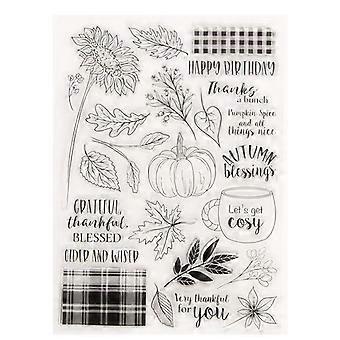 HAPPY BIRTHDAY
Thanks
a bunch
Pumpkin Spice
and all
things nice
AUTUMN
blessings
GRATEFUL,
thankful,
BLESSED
Let's get
COSY
CIDER AND WISER
Very thankful
for you